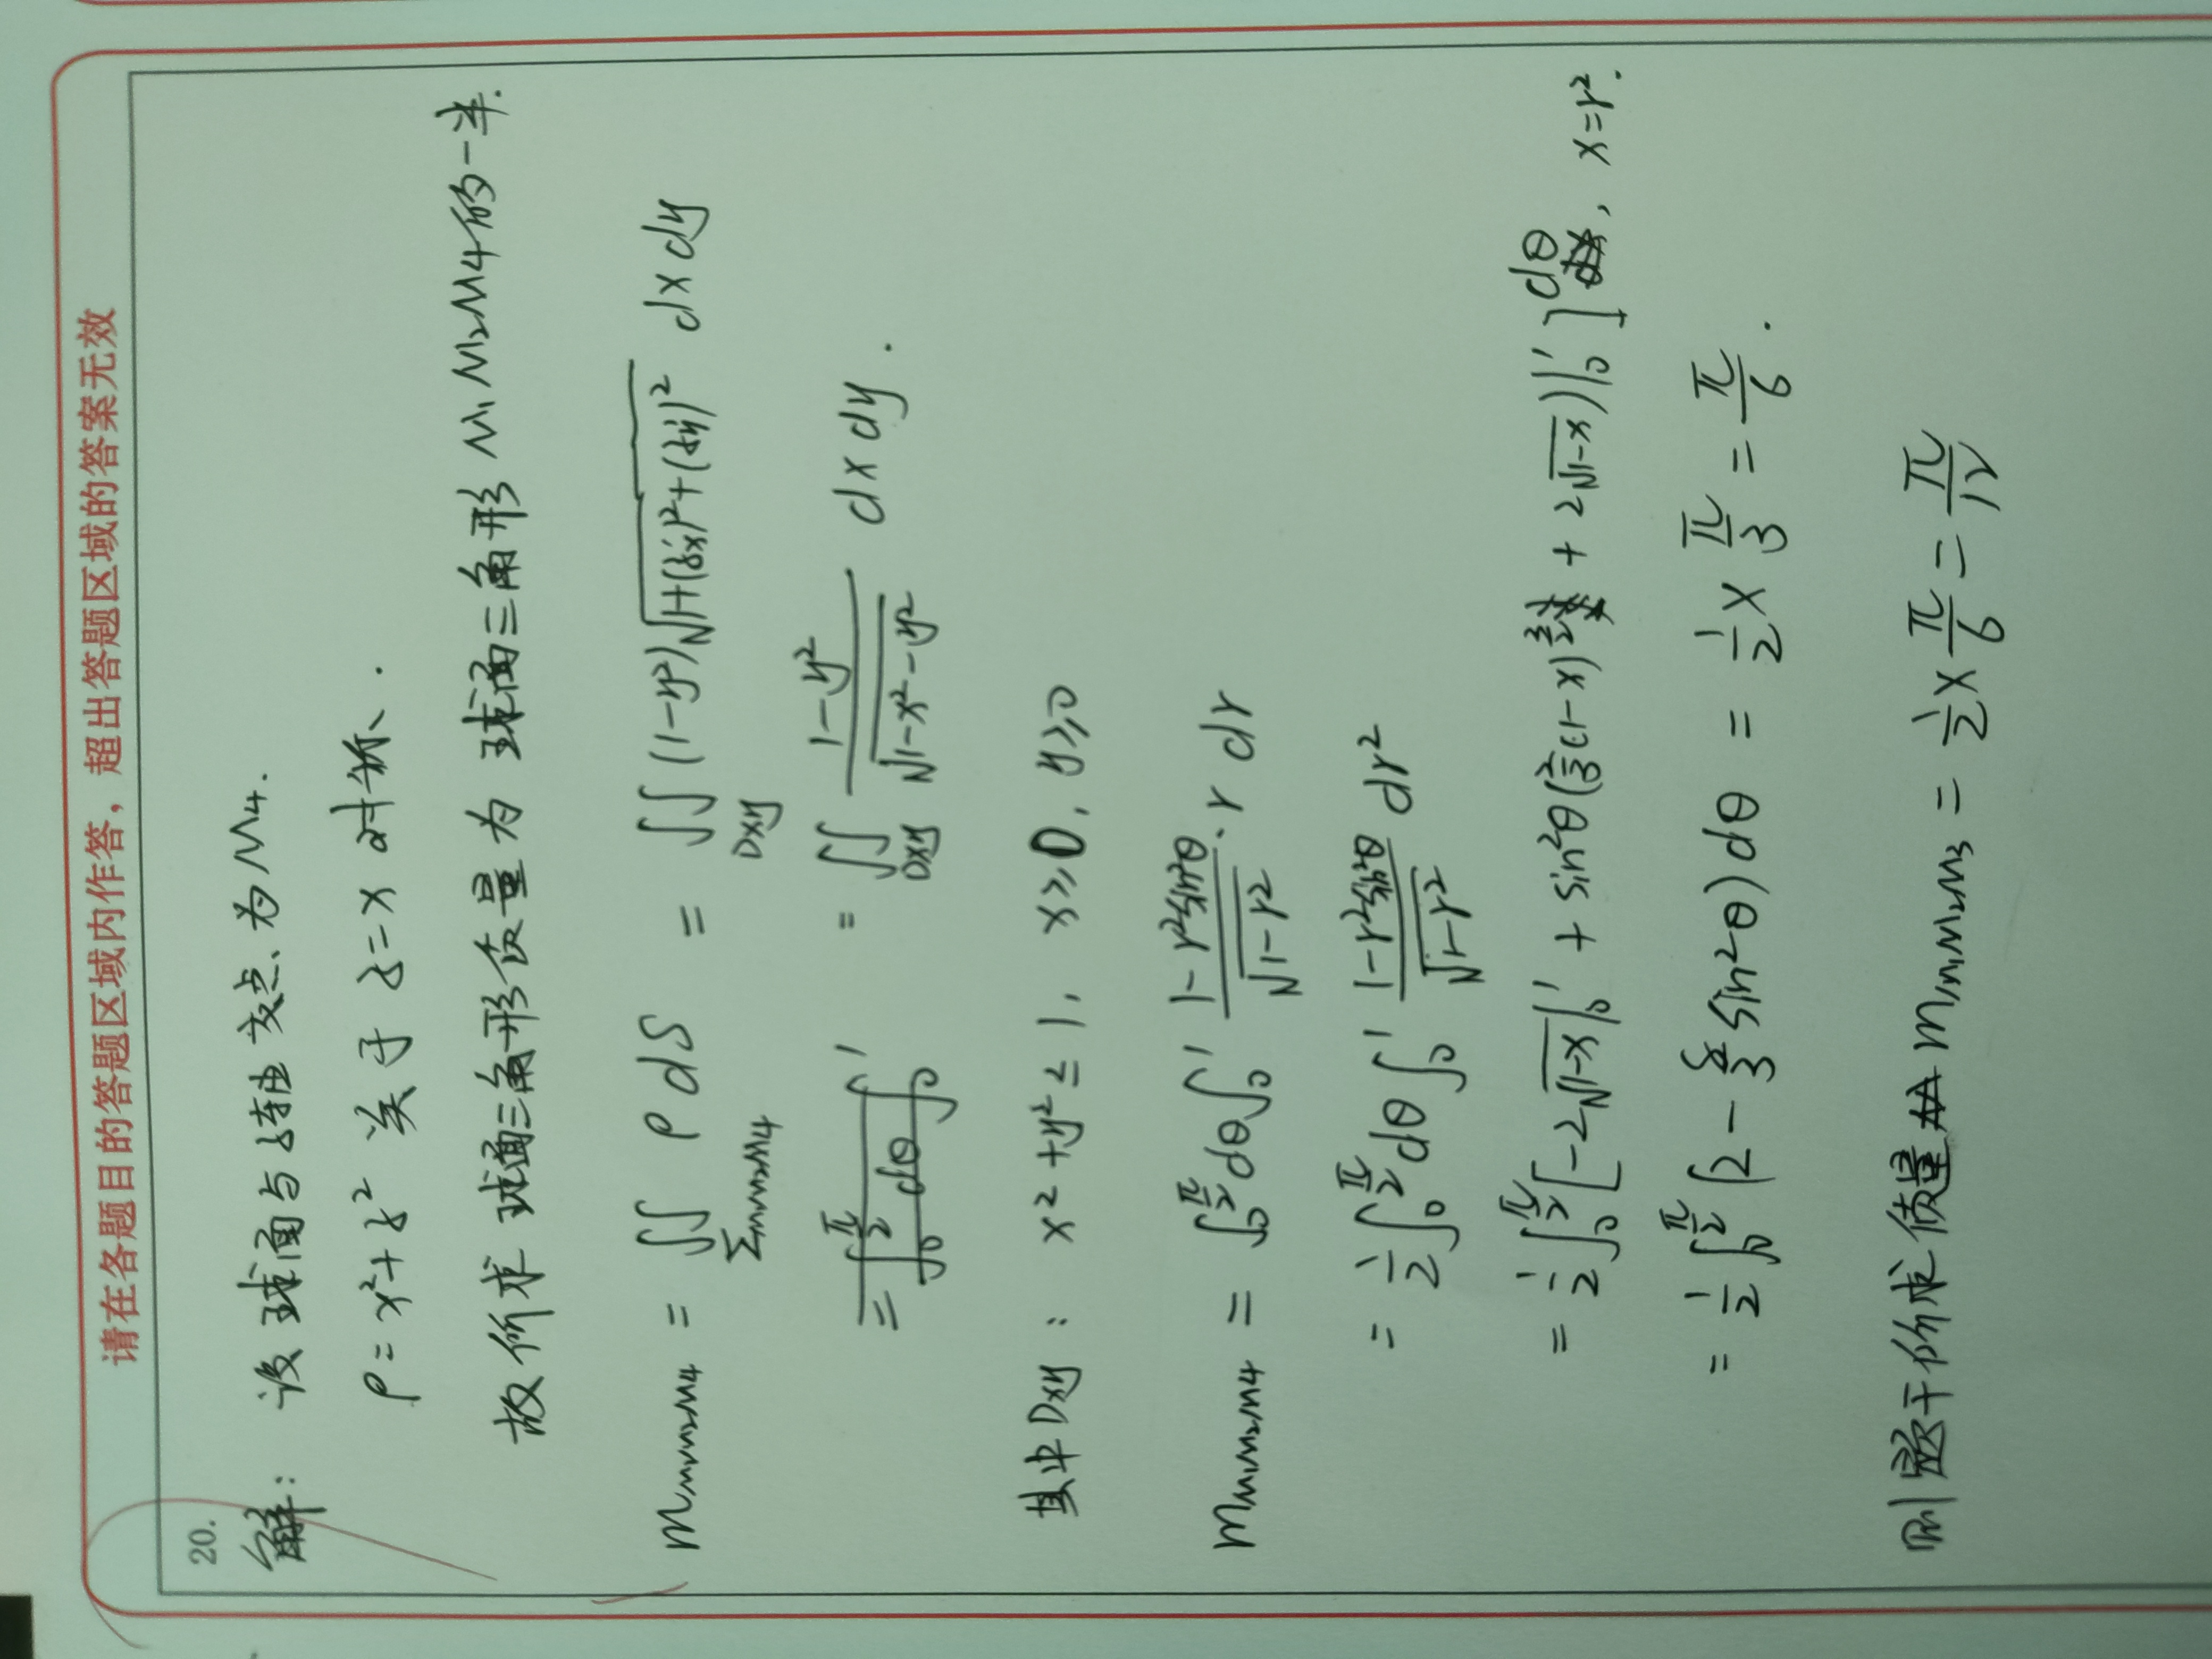 请在各题目的答题区域内作答，超出答题区域的答案无效
20.
解：设球面与z轴交点为M₄.
ρ=x²+z² 关于 z=x 对称.
故所求球面三角形质量为球面三角形 M₁M₂M₄的一半.
m_{M₁M₂M₄} = ∬_{Σ_{M₁M₂M₄}} ρ dS = ∬_{Dxy} (1-y²)√(1+(z'x)²+(z'y)²) dxdy
= ∫₀^{π/2} dθ ∫₀¹ = ∬_{Dxy} (1-y²)/√(1-x²-y²) dxdy.
其中Dxy: x²+y²≤1, x≥0, y≥0
m_{M₁M₂M₄} = ∫₀^{π/2} dθ ∫₀¹ (1-r²sin²θ)/√(1-r²) · r dr
= 1/2 ∫₀^{π/2} dθ ∫₀¹ (1-r²sin²θ)/√(1-r²) dr²
= 1/2 ∫₀^{π/2} [-2√(1-x)|₀¹ + sin²θ(2/3(1-x)^{3/2} + 2√(1-x))|₀¹] dθ, x=r².
= 1/2 ∫₀^{π/2} (2 - 8/3 sin²θ) dθ = 1/2 × π/3 = π/6.
则题干所求质量 m_{M₁M₂M₃} = 1/2 × π/6 = π/12